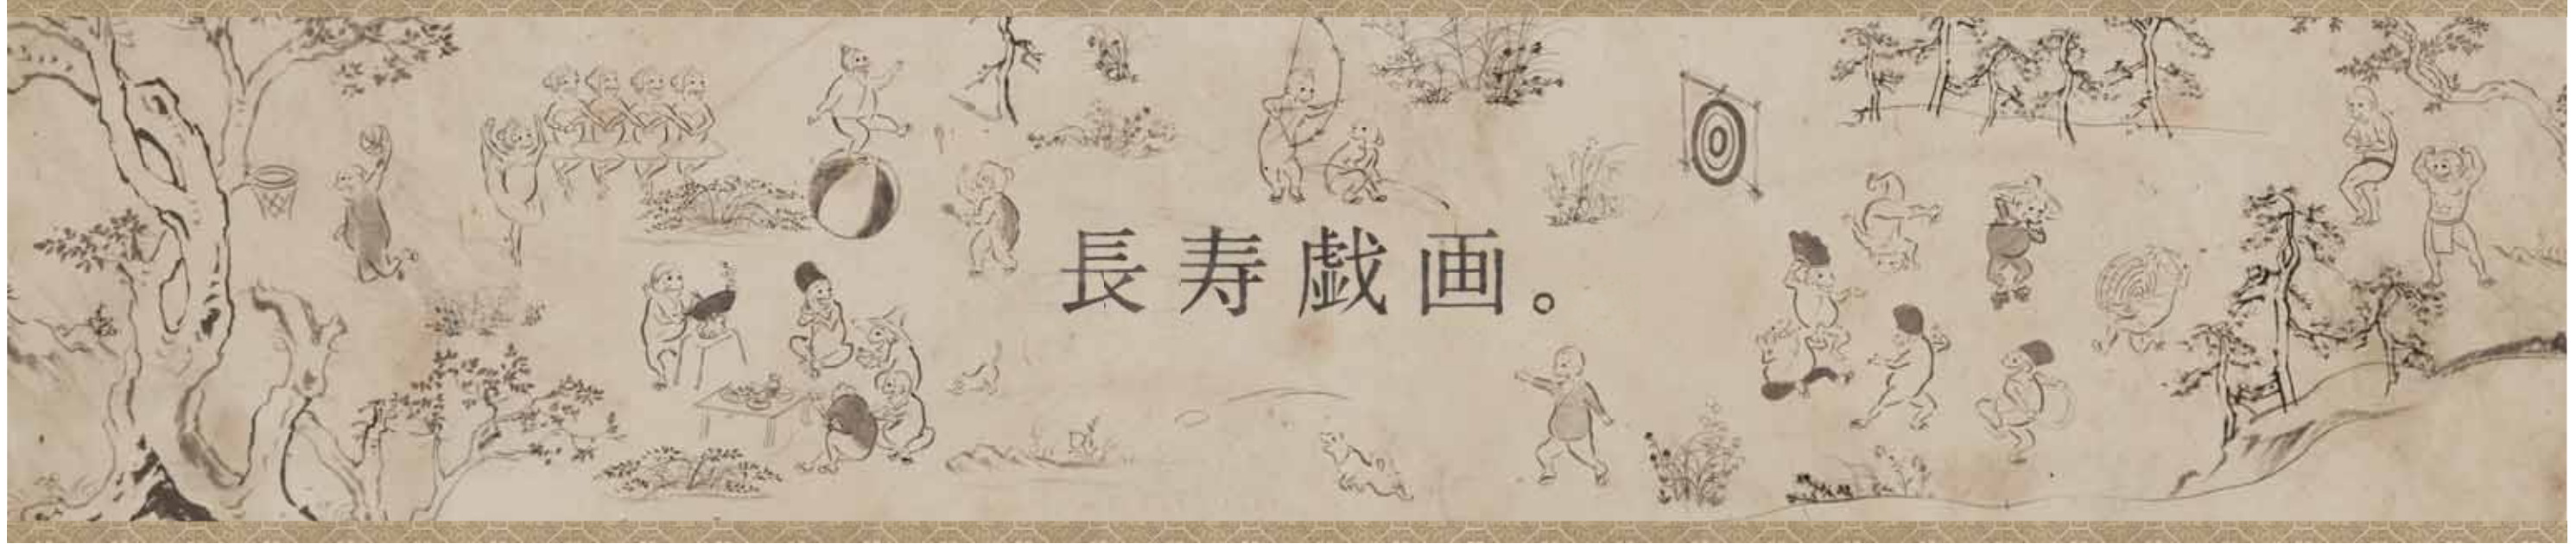 長寿戯画。